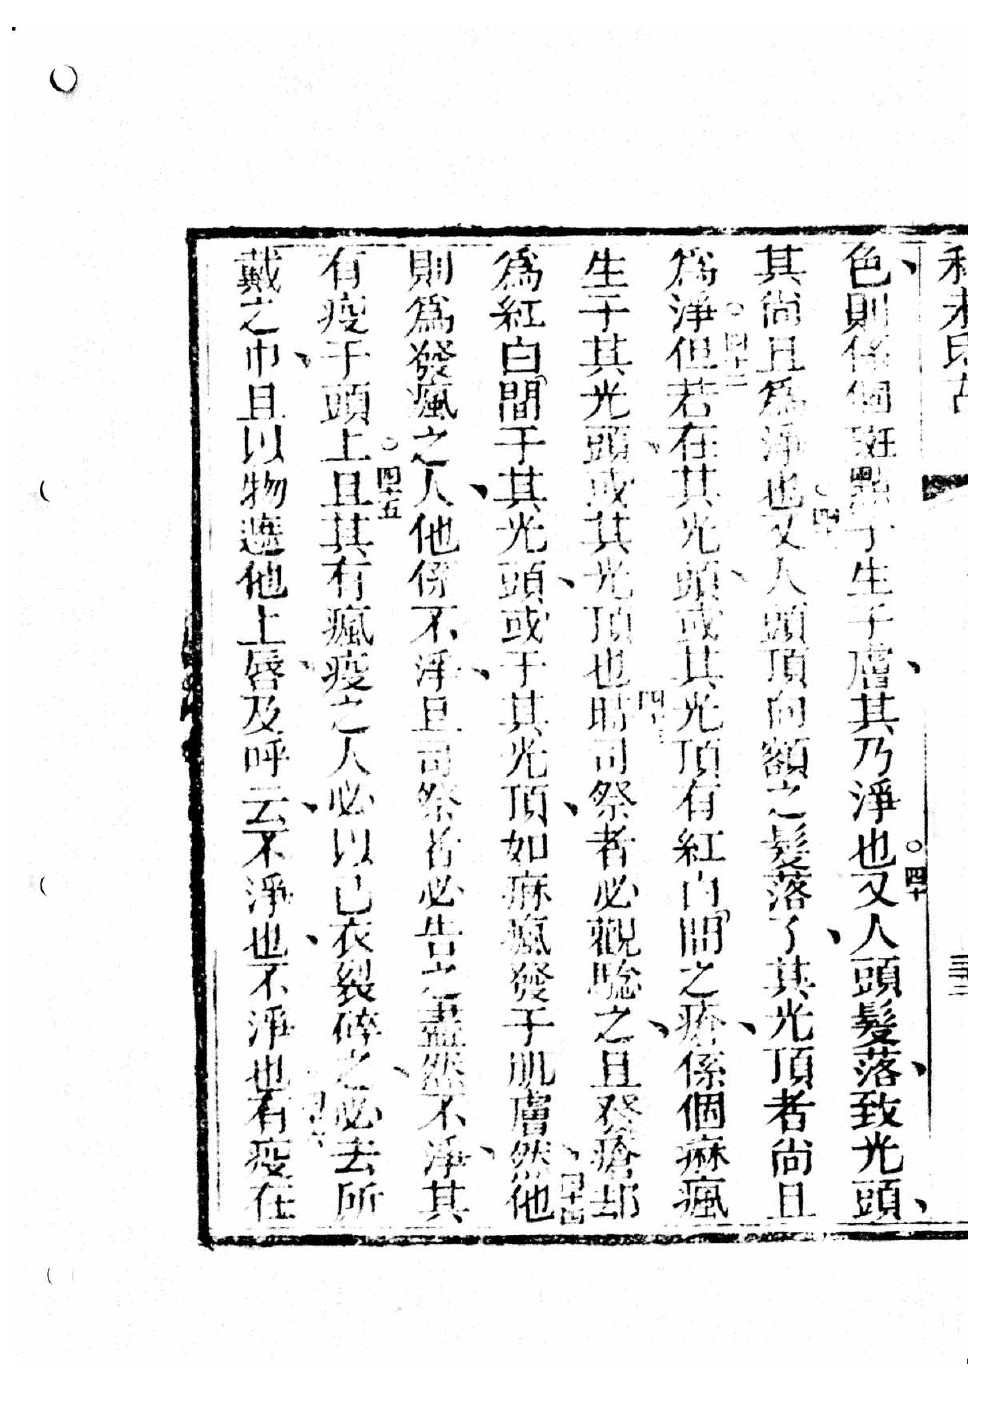 利未氏古
三十三
色則係個斑點于生于膚其乃淨也○四十又人頭髮落致光頭
其尚且為淨也○四一又人頭頂向額之髮落了其光頂者尚且
為淨○四十二但若在其光頭或其光頂有紅白間之瘡係個痳瘋
生于其光頭或其光頂也四十三時司祭者必觀驗之且發瘡却
為紅白間于其光頭或于其光頂如痳瘋發于肌膚然四十四他
則為發瘋之人他係不淨且司祭者必告之盡然不淨其
有疫于頭上○四十五且其有瘋疫之人必以已衣裂碎之必去所
戴之巾且以物遮他上唇及呼云不淨也不淨也四十六有疫在